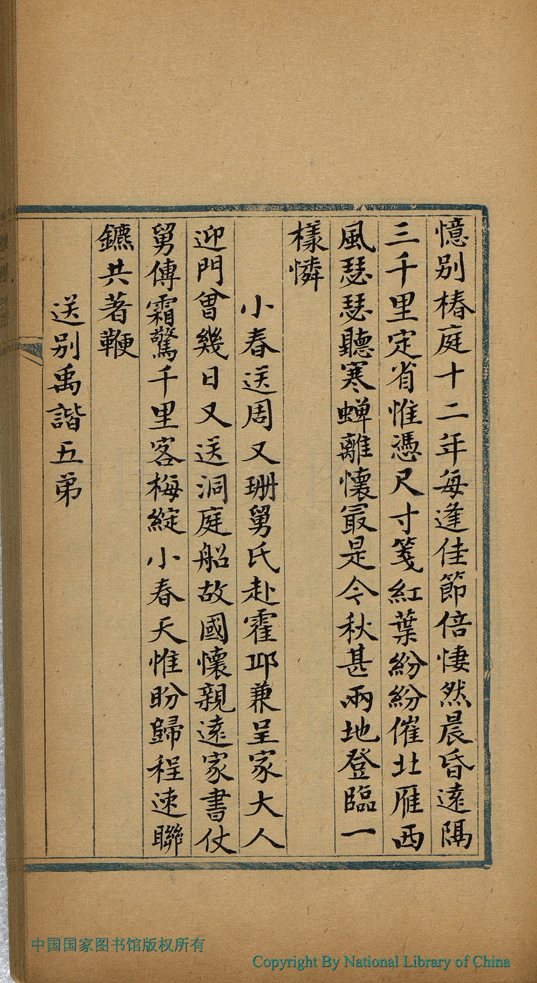 憶别椿庭十二年每逢佳節倍悽然晨昏遠隔
三千里定省惟憑尺寸箋紅葉紛紛催北雁西
風瑟瑟聽寒蟬離懷最是今秋甚兩地登臨一
樣憐
小春送周又珊舅氏赴霍邱兼呈家大人
迎門曾幾日又送洞庭船故國懷親遠家書仗
舅傳霜驚千里客梅綻小春天惟盼歸程速聯
鑣共著鞭
送别禹諧五弟
中国国家图书馆版权所有
Copyright By National Library of China